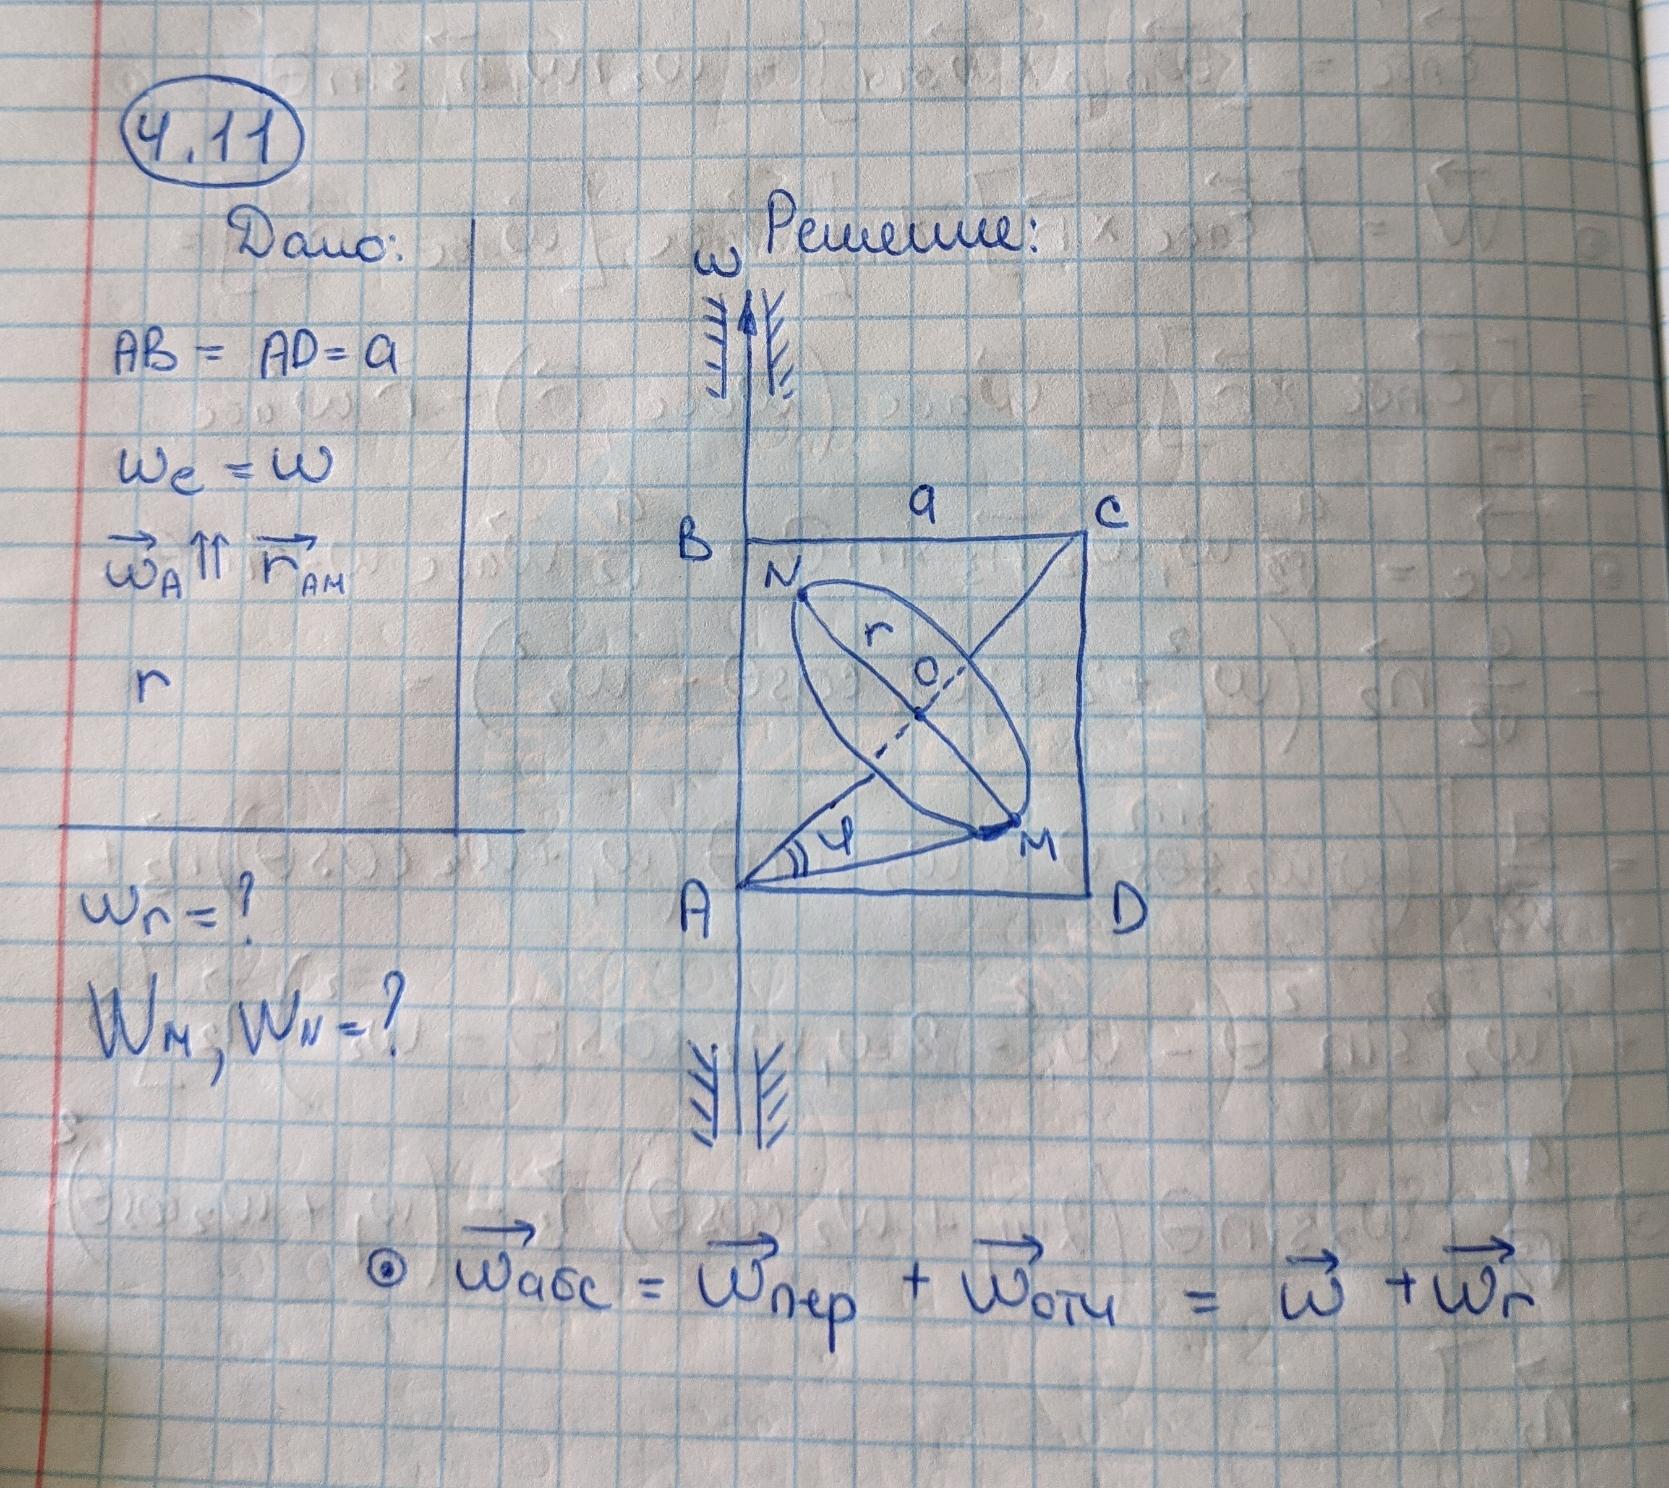 4.11
Дано:
AB = AD = a
ωe = ω
ω⃗A ⇈ r⃗AM
r
ωr = ?
WM, WN = ?
Решение:
ω
a
B
C
N
r
O
φ
M
A
D
⊙ ω⃗абс = ω⃗пер + ω⃗отн = ω⃗ + ω⃗r